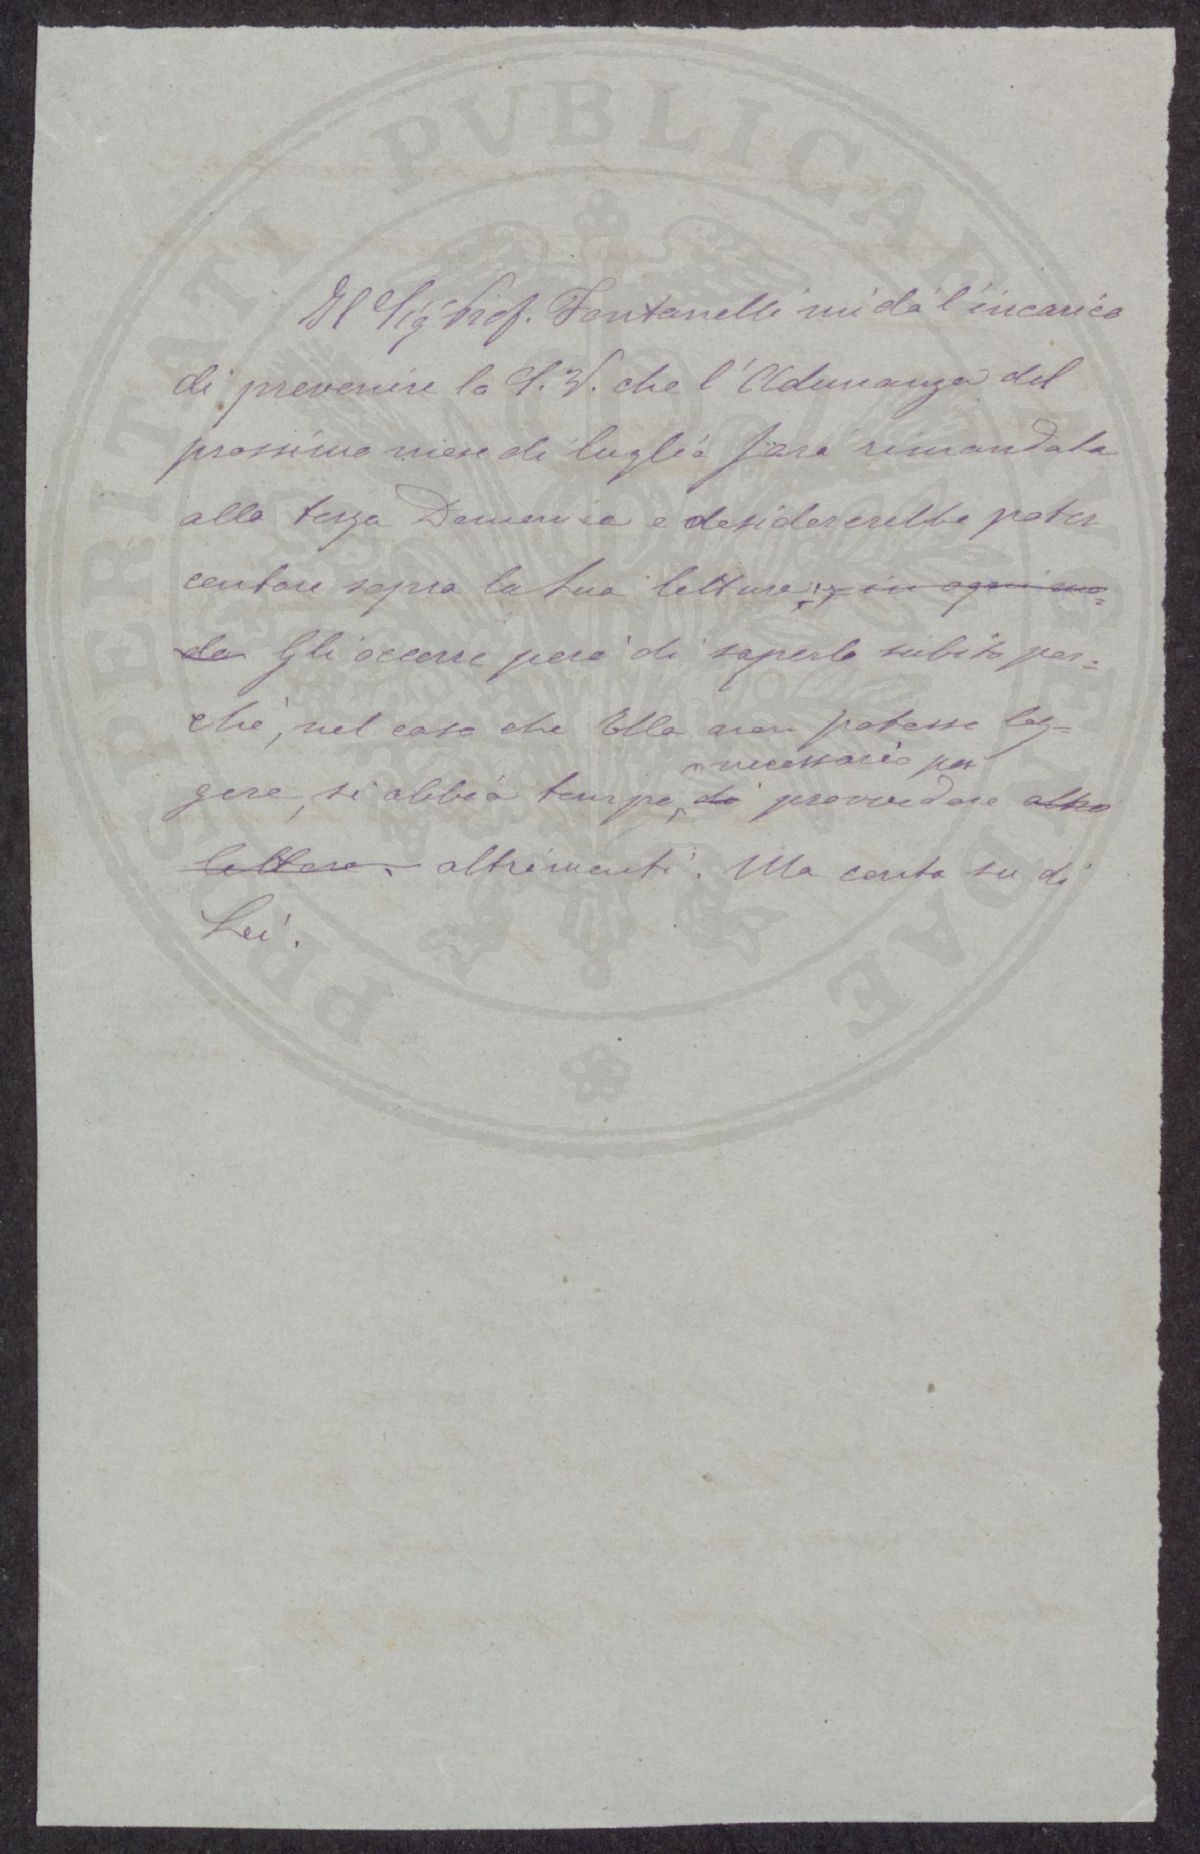 Il Sigr Prof. Fontanelli mi dà l'incarico
di prevenire la S. V. che l'Adunanza del
prossimo mese di luglio sarà rimandata
alla terza Domenica e desidererebbe poter
contare sopra la sua lettura; in ogni mo=
do Gli occorre però di saperlo subito per=
chè, nel caso che Ella non potesse leg=
necessario per
gere, si abbia tempo di provvedere altro
lettore. altrimenti. Ma conta su di
Lei.
PROSPERITATI PVBLICAE AVGENDAE